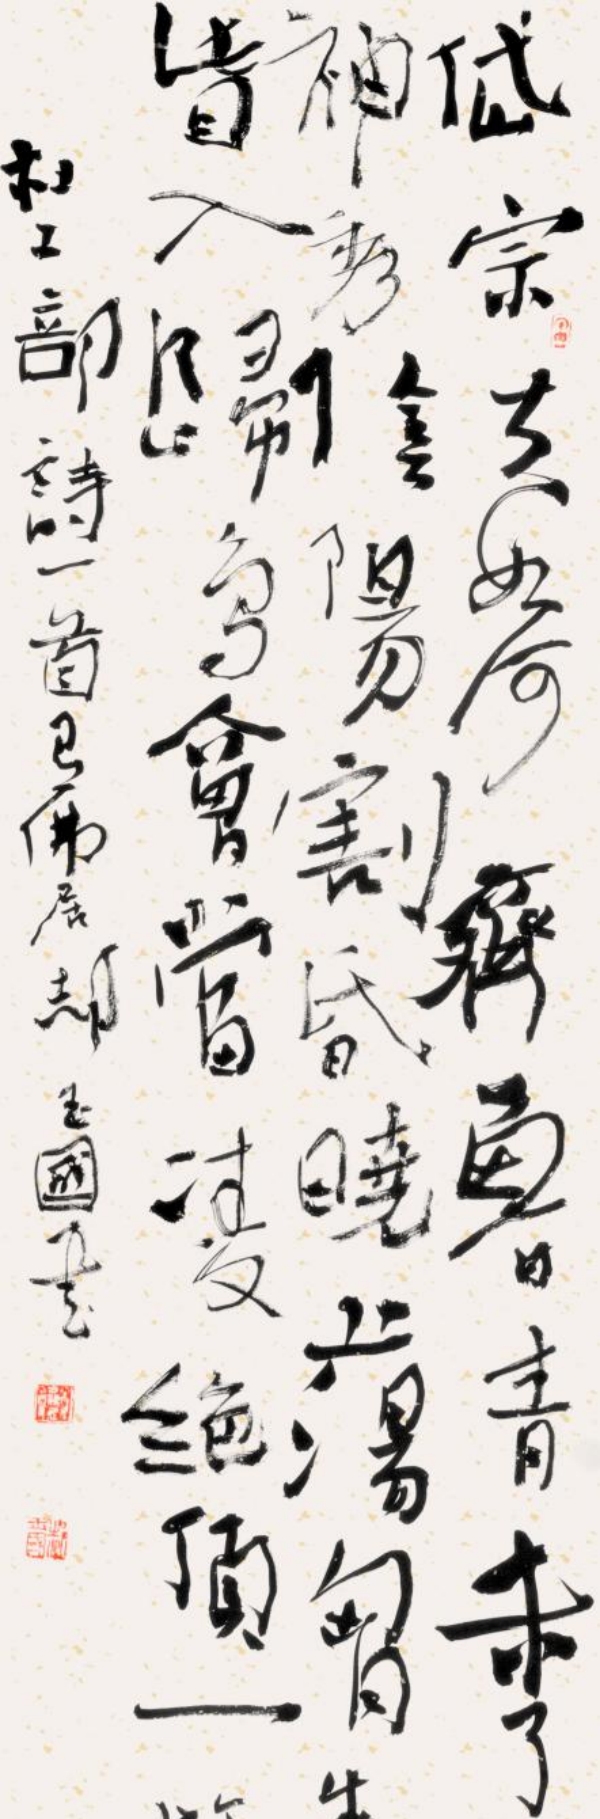 岱宗夫如何齊魯青未了
神秀陰陽割昏曉蕩胷生
眥入歸鳥會當凌絕頂一
杜工部詩一首佛居郝玉國書